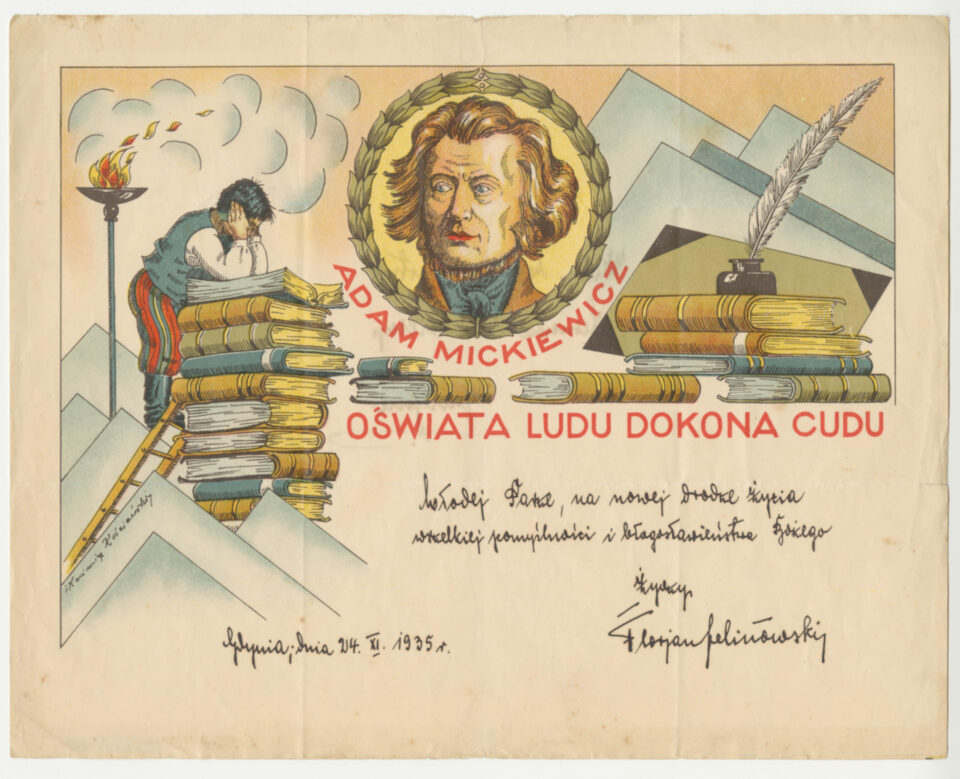 ADAM MICKIEWICZ
OŚWIATA LUDU DOKONA CUDU
Młodej Parze, na nowej drodze życia
wszelkiej pomyślności i błogosławieństwa Bożego
życzy
Florjan
Gdynia, dnia 24. XI. 1935 r.
Kazimierz Kościański